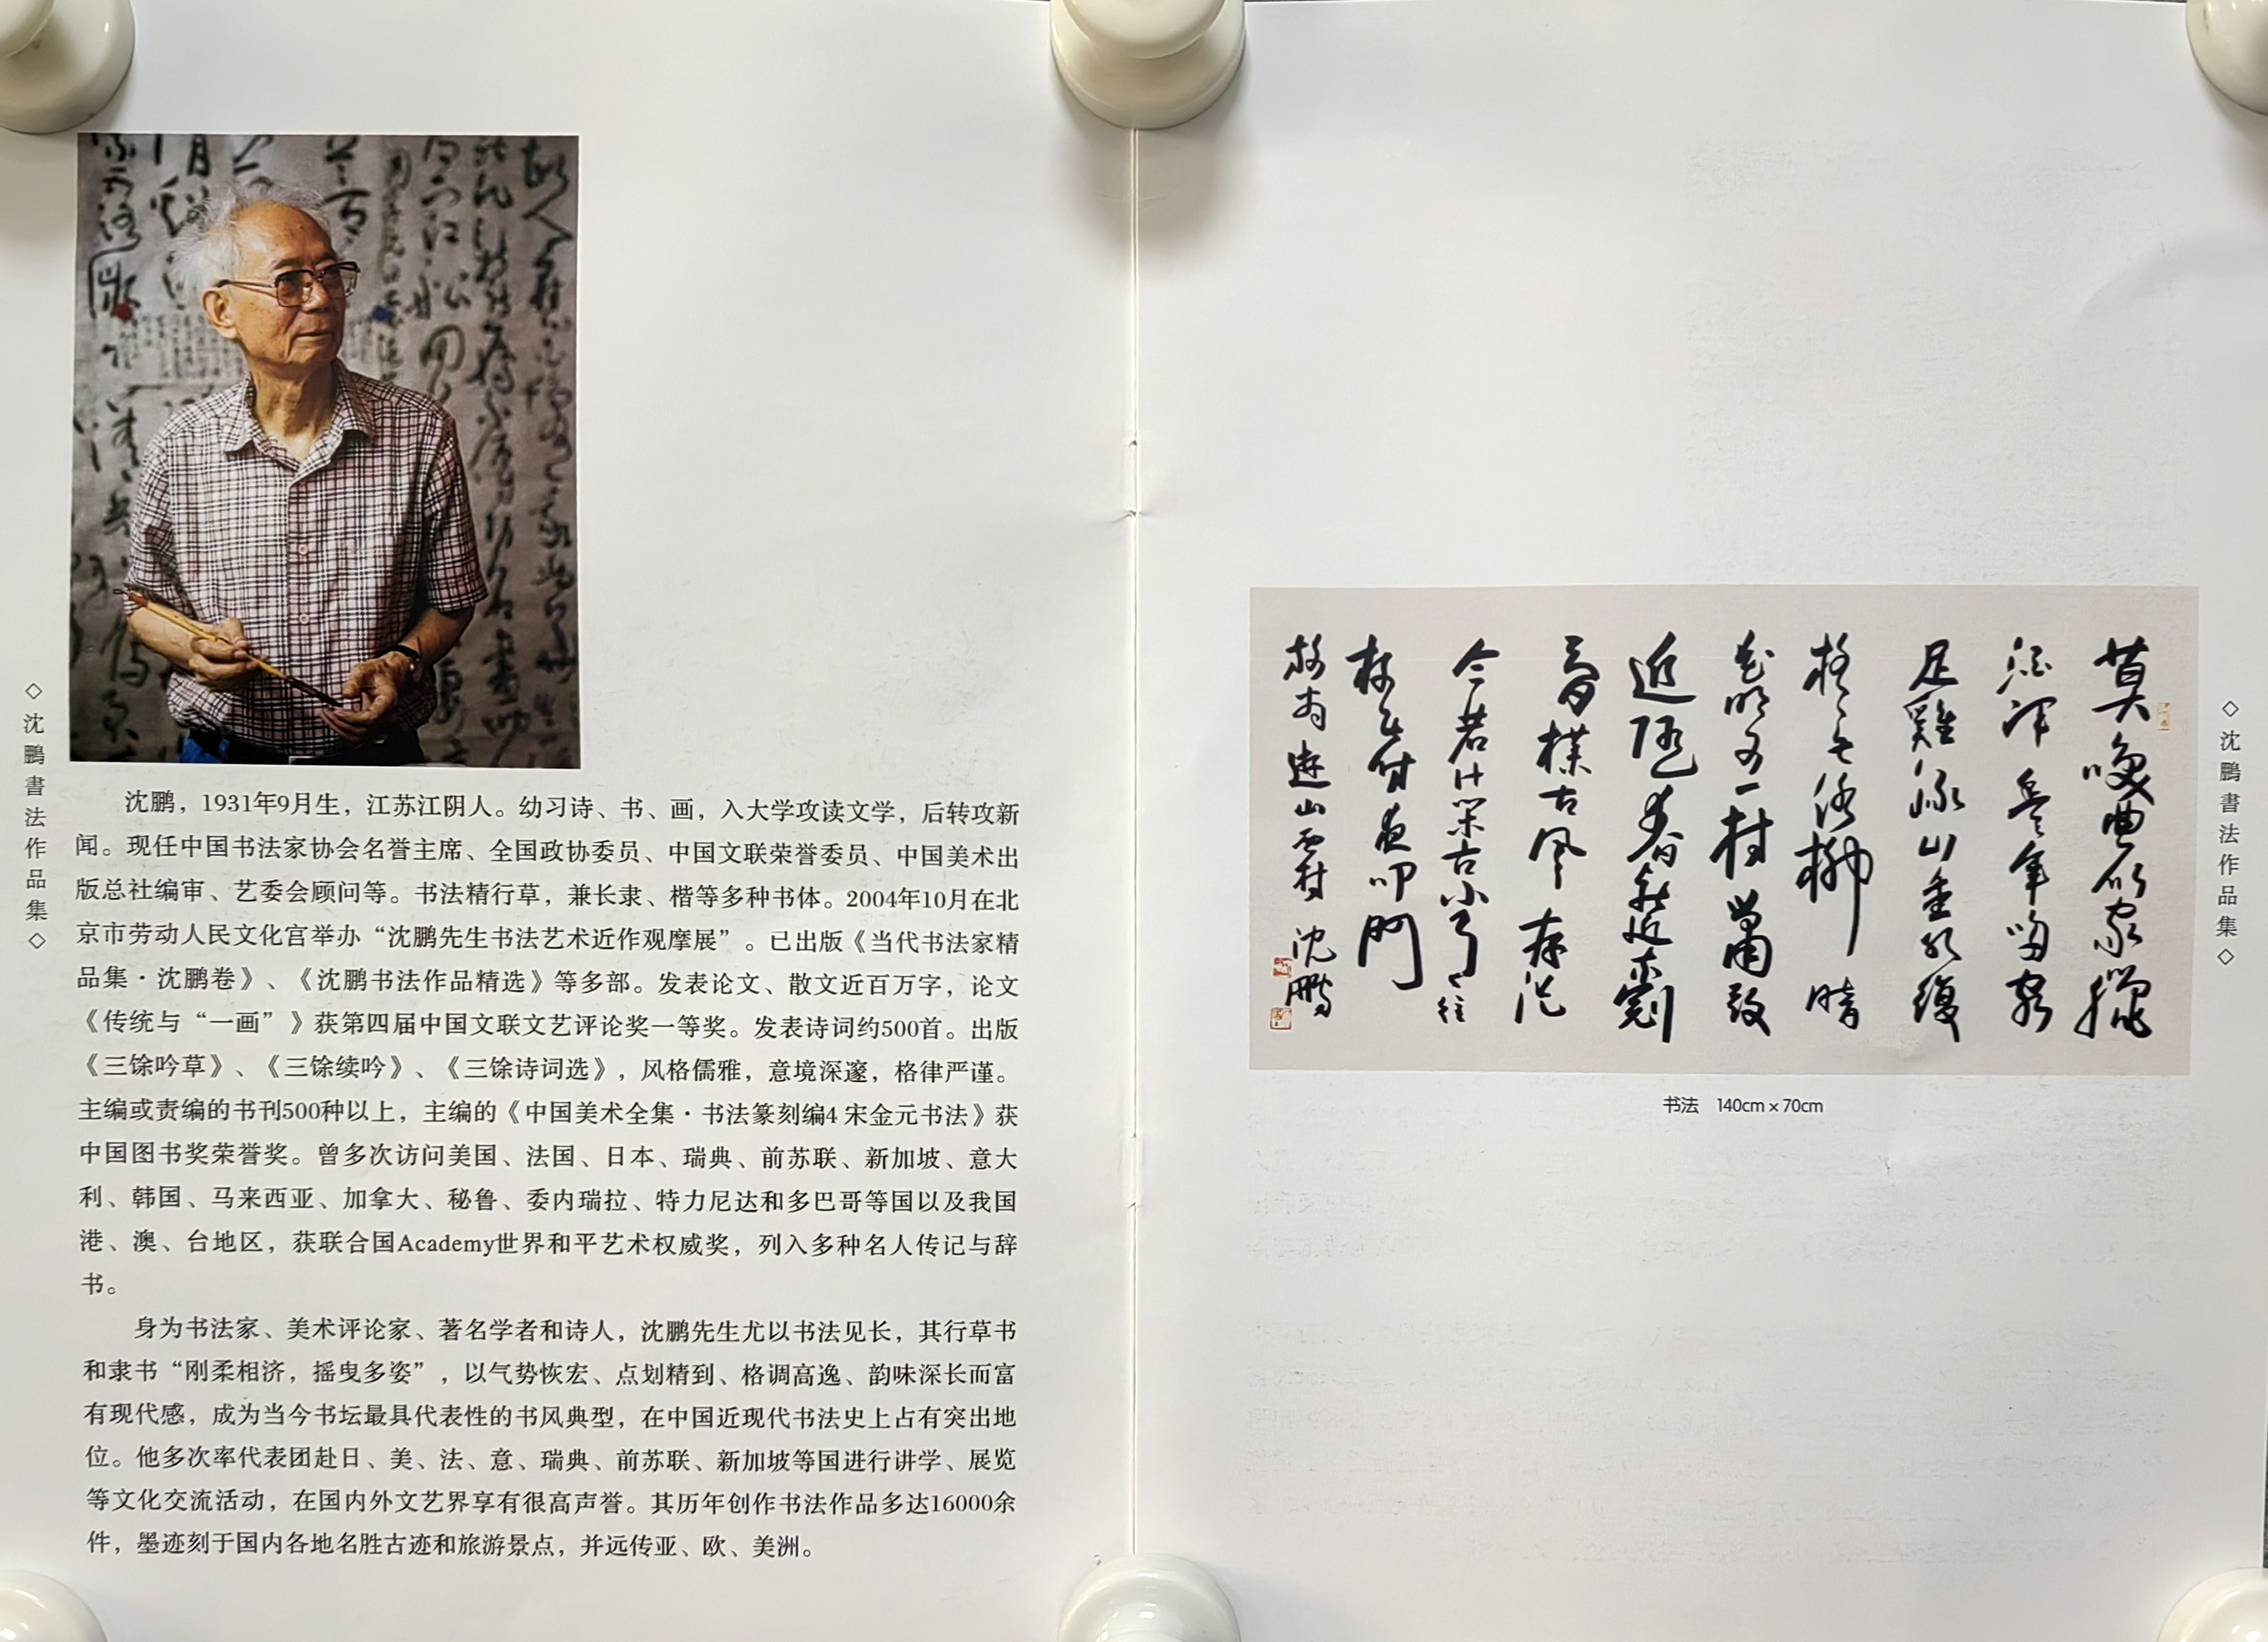 ◇沈鵬書法作品集◇
沈鹏，1931年9月生，江苏江阴人。幼习诗、书、画，入大学攻读文学，后转攻新
闻。现任中国书法家协会名誉主席、全国政协委员、中国文联荣誉委员、中国美术出
版总社编审、艺委会顾问等。书法精行草，兼长隶、楷等多种书体。2004年10月在北
京市劳动人民文化宫举办“沈鹏先生书法艺术近作观摩展”。已出版《当代书法家精
品集·沈鹏卷》、《沈鹏书法作品精选》等多部。发表论文、散文近百万字，论文
《传统与“一画”》获第四届中国文联文艺评论奖一等奖。发表诗词约500首。出版
《三馀吟草》、《三馀续吟》、《三馀诗词选》，风格儒雅，意境深邃，格律严谨。
主编或责编的书刊500种以上，主编的《中国美术全集·书法篆刻编4 宋金元书法》获
中国图书奖荣誉奖。曾多次访问美国、法国、日本、瑞典、前苏联、新加坡、意大
利、韩国、马来西亚、加拿大、秘鲁、委内瑞拉、特力尼达和多巴哥等国以及我国
港、澳、台地区，获联合国Academy世界和平艺术权威奖，列入多种名人传记与辞
书。
身为书法家、美术评论家、著名学者和诗人，沈鹏先生尤以书法见长，其行草书
和隶书“刚柔相济，摇曳多姿”，以气势恢宏、点划精到、格调高逸、韵味深长而富
有现代感，成为当今书坛最具代表性的书风典型，在中国近现代书法史上占有突出地
位。他多次率代表团赴日、美、法、意、瑞典、前苏联、新加坡等国进行讲学、展览
等文化交流活动，在国内外文艺界享有很高声誉。其历年创作书法作品多达16000余
件，墨迹刻于国内各地名胜古迹和旅游景点，并远传亚、欧、美洲。
莫農家臘
酒渾年留客
足雞豚山重水複
疑無路柳暗
花明又一村簫鼓
追隨春社近衣冠
簡樸古風存從
今若許閑
杖無時夜叩門
放翁遊山西村 沈鵬
书法 140cm×70cm
◇沈鵬書法作品集◇